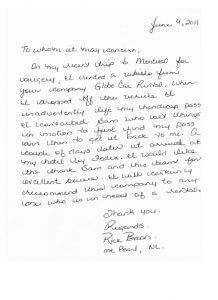 June 4, 2011
To whom it may concern,
On my recent trip to Montreal for
surgery, I rented a vehicle from
your company Globe Car Rental. When
I dropped off the vehicle I
inadvertently left my handicap pass
I contacted Sam who set things
in motion to find my pass
then to get it back to me. A
couple of days later it arrived at
my hotel by Fedex. I would like
to thank Sam and his team for
excellent service. I will certainly
recommend this company to any
one who is in need of a rental.
Thank you.
Regards.
Rick
Mt Pearl, NL.